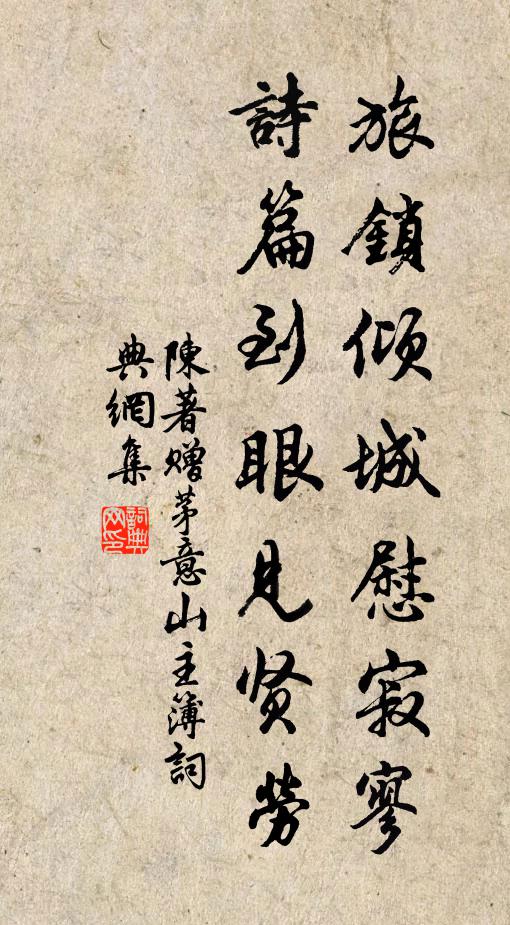 旅鎖傾城慰寂寥
詩篇到眼見贤勞
陳著贈茅意山主簿詞
典網集
詞典网印